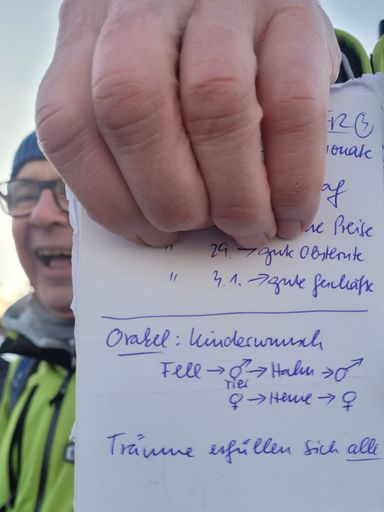 onate
hohe Preise
" 29. → gute Obsternte
" 3.1. → gute Geschäfte
Orakel: Kinderwunsch
Fell → ♂ → Hahn → ♂
Tier
♀ → Henne → ♀
Träume erfüllen sich alle